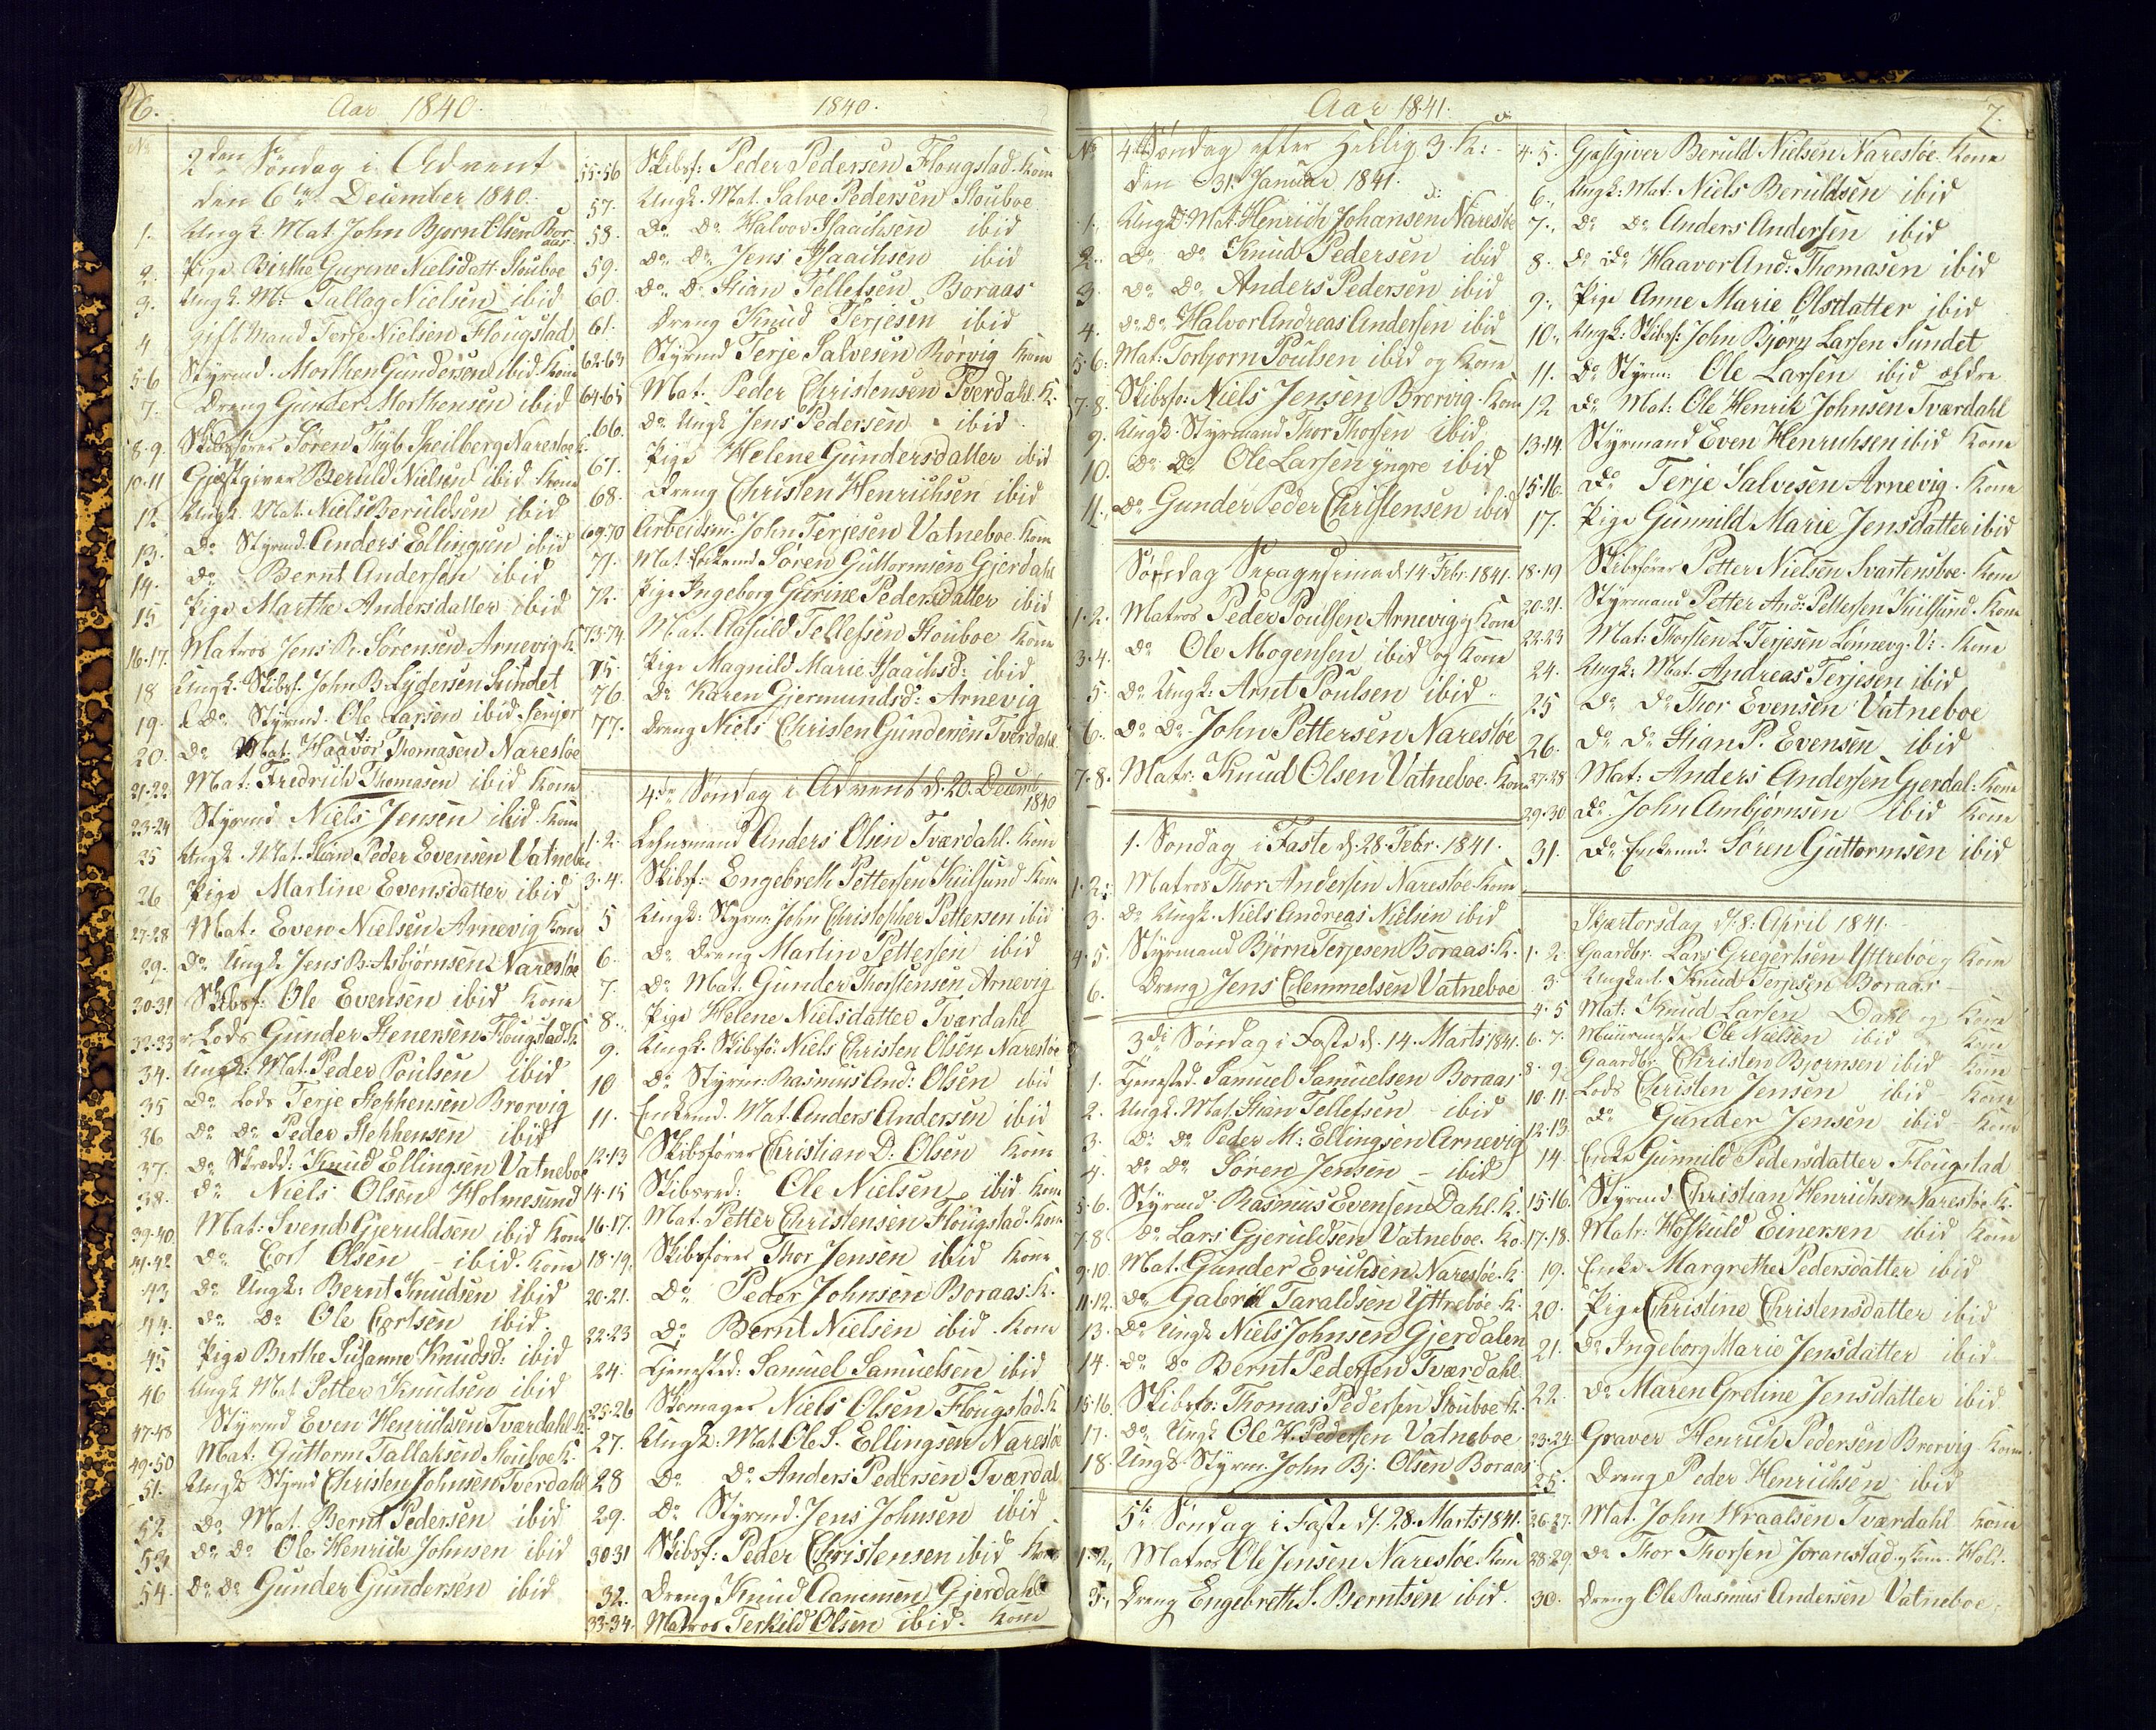 6. Aar 1840. 1840.
No
2den Søndag i Advent
den 6te December 1840.
1. Ungk. Mat. John Bjørn Olsen Boraas
2. Pige Birthe Gurine Nielsdatt. Stouboe
3. Ungk. M: Tallag Nielsen ibid
4 gift Mand Terje Nielsen Flougstad
5-6 Styrmd. Morthen Gundersen ibid. Kone
7. Dreng Gunder Morthensen ibid
8-9. Skibsfører Søren Thÿb. Speilberg Narestøe K.
10-11 Gjæstgiver Beruld Nielsen ibid. Kone
12 Ungk. Mat. Niels Beruldsen ibid
13. Do Styrmd. Anders Ellingsen ibid
14. Do Bernt Andersen ibid
15 Pige Marthe Andersdatter ibid
16-17. Matros Jens Sørensen Arnevig K.
18 Ungk. Skibsf. John B. Lydersen Sundet
19. Do Styrmd. Ole Larsen ibid. Senjor
20. Do Mat. Haavor Thomasen Narestøe
21-22 Mat: Fredrich Thomasen ibid Kone
23-24 Styrmd Niels Jensen ibid. Kone
25 Ungk. Mat. Stian Peder Evensen Vatneboe
26 Pige Martine Evensdatter ibid
27-28 Mat. Even Nielsen Arnevig Kone
29. Do Ungk. Jens B. Asbjørnsen Narestøe
30-31 Skibsf: Ole Evensen ibid Kone
32-33 Lods Gunder Stenersen Flougstad. K
34. Ungk: Mat. Peder Poulsen ibid
35 Do Lods Terje Stephensen Brørvig
36 Do Do Peder Stephensen ibid
37. Do Skrædd: Knud Ellingsen Vatneboe
38. Do Niels Olsen Holmesund
39-40 Mat: Svend Gjeruldsen ibid Kone
41-42 Do Corl Olsen - ibid. Kone
43 Do Ungk: Bernt Knudsen ibid
44. Do Do Ole Corlsen ibid.
45 Pige Birthe Susanne Knudsd: ibid
46 Ungk. Mat. Petter Knudsen ibid
47-48 Styrmd Even Henrichsen Tverdahl K.
49-50 Mat: Guttorm Tallaksen Stouboe K.
51. Ungk Styrmd Christen Johnsen Tverdahl
52 Do Mat. Bernt Pedersen ibid
53. Do Do Ole Henrich Johnsen ibid
54. Do Do Gunder Gundersen ibid
55-56 Skibsf: Peder Pedersen Flougstad. Kone
57. Ungk. Mat. Salve Pedersen Stouboe
58. Do Do Halvor Isaachsen ibid
59. Do Do Jens Isaachsen ibid
60. Do Do Stian Tellefsen Boraas
61. Dreng Knud Terjesen ibid
62-63 Styrmd Terje Salvesen Rørvig Kone
64-65 Mat. Peder Christensen Tverdahl. K.
66. Do Ungk Jens Pedersen ibid
67. Pige Helene Gundersdatter ibid
68. Dreng Christen Henrichsen ibid
69-70 Arbeidsm: John Terjesen Vatneboe. Kone
71. Mat. Enkemd Søren Guttormsen Gjerdahl
72. Pige Ingeborg Gurine Pedersdatter ibid
73-74 Mat. Aasuld Tellefsen Stouboe Kone
75. Pige Magnild Marie Isaachsd: ibid
76. Do Karen Gjermundsd: Arnevig
77. Dreng Niels Christen Gundersen Tverdahl
4de Søndag i Advent d. 20. Decemb 1840
1-2. Lehnsmand Anders Olsen Tværdahl. Kone
3-4. Skibsf: Engebreth Pettersen Kiilsund Kone
5 Ungk: Styrm: John Christopher Pettersen ibid
6. Do Dreng Martin Pettersen ibid
7. Do Mat. Gunder Thorstensen Arnevig
8. Pige Helene Nielsdatter Tværdahl
9. Ungk. Skibsfø: Niels Christen Olsen Narestøe
10 Do Styrm: Rasmus And: Olsen ibid
11. Enkemd. Mat. Anders Andersen ibid
12-13 Skibsfører Christian D. Olsen Kone
14-15 Skibsred: Ole Nielsen ibid Kone
16-17. Mat. Petter Christensen Flougstad. Kone
18-19. Skibsfører Thor Jensen ibid Kone
20-21. Do Peder Johnsen Boraas. K.
22-23 Do Bernt Nielsen ibid. Kone
24. Tjenested: Samuel Samuelsen ibid
25-26 Skomager Niels Olsen Flougstad. K
27. Ungk: Mat. Ole S. Ellingsen Narestøe
28 Do Do Anders Pedersen Tværdal
29. Do Styrmd. Jens Johnsen ibid
30-31 Skibsf: Peder Christensen ibid Kone
32. Dreng Knud Aanensen Gjerdahl
33-34. Matros Terkild Olsen ibid. Kone
Aar 1841. 7.
No 4de Søndag efter Hellig 3 K:
den 31. Januar 1841.
1. Ungk. Mat. Henrich Johansen Narestøe
2. Do Do Knud Pedersen ibid
3. Do Do Anders Pedersen ibid
4. Do Do Halvor Andreas Andersen ibid
5-6. Mat: Torbjorn Poulsen ibid og Kone
7-8. Skibsfø: Niels Jensen Brørvig. Kone
9. Ungk. Styrmand Thor Thorsen ibid
10. Do Do Ole Larsen yngre ibid
11. Do Gunder Peder Christensen ibid
Søndag Sexagesima d. 14 Febr. 1841.
1-2. Matros Peder Poulsen Arnevig og Kone
3-4. Do Ole Mogensen ibid og Kone
5. Do Ungk: Arnt Poulsen ibid
6. Do Do John Pettersen Narestøe
7-8. Matr: Knud Olsen Vatneboe. Kone
1. Søndag i Faste d. 28. Febr. 1841.
1-2. Matros Thor Andersen Narestøe Kone
3. Do Ungk. Niels Andreas Nielsen ibid
4-5. Styrmand Bjørn Terjesen Boraas. K.
6. Dreng Jens Clemmetsen Vatneboe
3die Søndag i Faste d. 14. Marts 1841.
1. Tjenested. Samuel Samuelsen Boraas
2. Ungk. Mat. Stian Tellefsen - ibid
3. Do Do Peder M: Ellingsen Arnevig
4. Do Do Søren Jensen - ibid
5-6. Styrmd. Rasmus Evensen Dahl. K.
7-8. Do Lars Gjeruldsen Vatneboe. Ko.
9-10. Mat. Gunder Erichsen Narestøe. K.
11-12. Do Gabriel Taraldsen Yttrebøe K.
13. Do Ungk Niels Johnsen Gjerdalen
14. Do Do Bernt Pedersen Tværdahl
15-16. Skibsfø: Thomas Pedersen Stouboe K.
17. Do Ungk Ole H. Pedersen Vatneboe
18. Ungk. Styrm. John Bj: Olsen Boraas
5te Søndag i Faste d. 28. Marts 1841.
1-2. Matros Ole Jensen Narestøe Kone
3. Dreng Engebreth S. Berntsen ibid.
4-5. Gjæstgiver Beruld Nielsen Narestøe. Kone
6. Ungk: Mat: Niels Beruldsen ibid
7. Do Do Anders Andersen ibid
8. Do Do Haavor And: Thomasen ibid
9. Pige Anne Marie Olsdatter ibid
10. Ungk: Skibsf: John Bjørn Larsen Sundet
11. Do Styrm: Ole Larsen ibid ældre
12 Do Mat: Ole Henrik Johnsen Tværdahl
13-14. Styrmand Even Henrichsen ibid Kone
15-16. Do Terje Salvesen Arnevig. Kone
17. Pige Gunnild Marie Jensdatter ibid
18-19 Skibsfører Petter Nielsen Svartensboe. Kone
20-21. Styrmand Petter And: Pettersen Kiilsund. Kone
22-23 Mat: Thorsten L Terjesen Kone
24. Ungk: Mat. Andreas Terjesen ibid
25 Do Do Thor Evensen Vatneboe
26. Do Do Stian P. Evensen ibid
27-28 Mat: Anders Andersen Gjerdal. Kone
29-30 Do John Ambjørnsen ibid Kone
31. Do Enkemd. Søren Guttormsen ibid
Skjærtorsdag d. 8: April 1841.
1-2. Gaardbr. Lars Gregersen Yttrebøe og Kone
3. Ungkarl Knud Terjesen Boraas
4-5 Mat: Knud Larsen Dahl og Kone
6-7. Muurmester Ole Nielsen ibid Kone
8-9. Gaardbr Christen Bjørnsen ibid Kone
10-11. Lods Christen Jensen ibid Kone
12-13. Do Gunder Jensen ibid Kone
14. Enke Gunnild Pedersdatter Flougstad
15-16. Styrmd Christian Henrichsen Narestøe K.
17-18. Matr: Hoskuld Einersen ibid Kone
19. Enke Margrethe Pedersdatter ibid
20. Pige Christine Christensdatter ibid
21. Do Ingeborg Marie Jensdatter ibid
22. Do Maren Gretine Jensdatter ibid
23-24 Graver Henrich Pedersen Brørvig Kone
25. Dreng Peder Henrichsen ibid
26-27. Mat. John Wraalsen Tværdahl Kone
28-29. Do Thor Thorsen Joranstad og Kone. Holt.
30. Dreng Ole Rasmus Andersen Vatneboe.